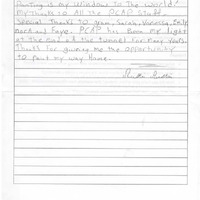 Painting is my window to the world!
My thanks to all the PCAP Staff.
Special Thanks to gram, Sarah, Vanessa,
nard and Faye. PCAP has been my light
at the end of the tunnel for many years.
Thanks for giving me the opportunity
to paint my way home.